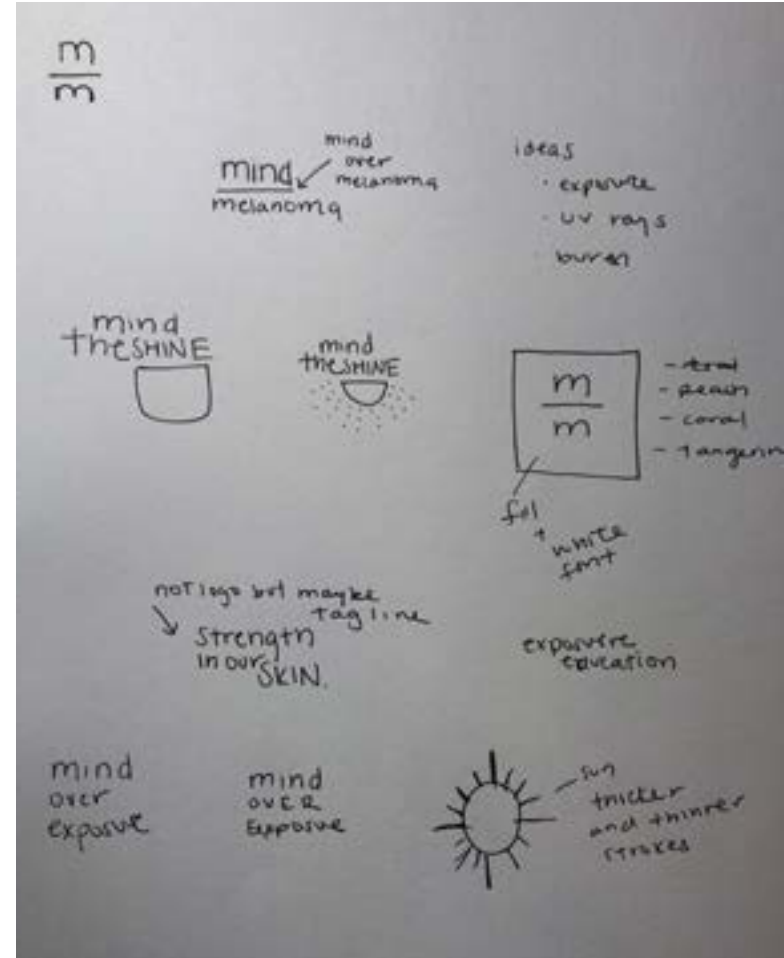 m
m
mind
melanoma
mind
over
melanoma
ideas
· exposure
· uv rays
· buren
mind
the SHINE
mind
the SHINE
m
m
- peach
- coral
- tangerin
+ white
font
not logo but maybe
tag line
strength
in our SKIN.
exposure
education
mind
over
exposue
mind
OVER
Exposue
sun
thicker
and thinner
strokes